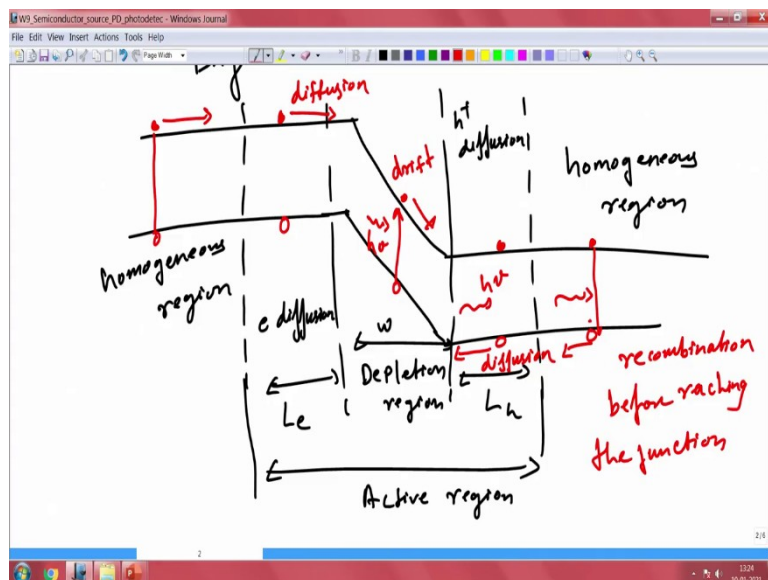 W9_Semiconductor_source_PD_photodetec - Windows Journal
File Edit View Insert Actions Tools Help
Page Width
diffusion
h+
diffusion
drift
homogeneous
region
hν
homogeneous
region
hν
e diffusion
w
diffusion
Depletion
region
Le
Lh
recombination
before raching
the junction
Active region
2
2/6
13:24